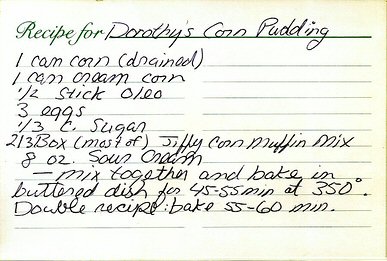 Recipe for Dorothy's Corn Pudding
1 can corn (drained)
1 can cream corn
1/2 stick Oleo
3 eggs
1/3 c. Sugar
2/3 Box (most of) Jiffy Corn muffin mix
8 oz. Sour Cream
— mix together and bake in
buttered dish for 45-55 min at 350°.
Double recipe: bake 55-60 min.